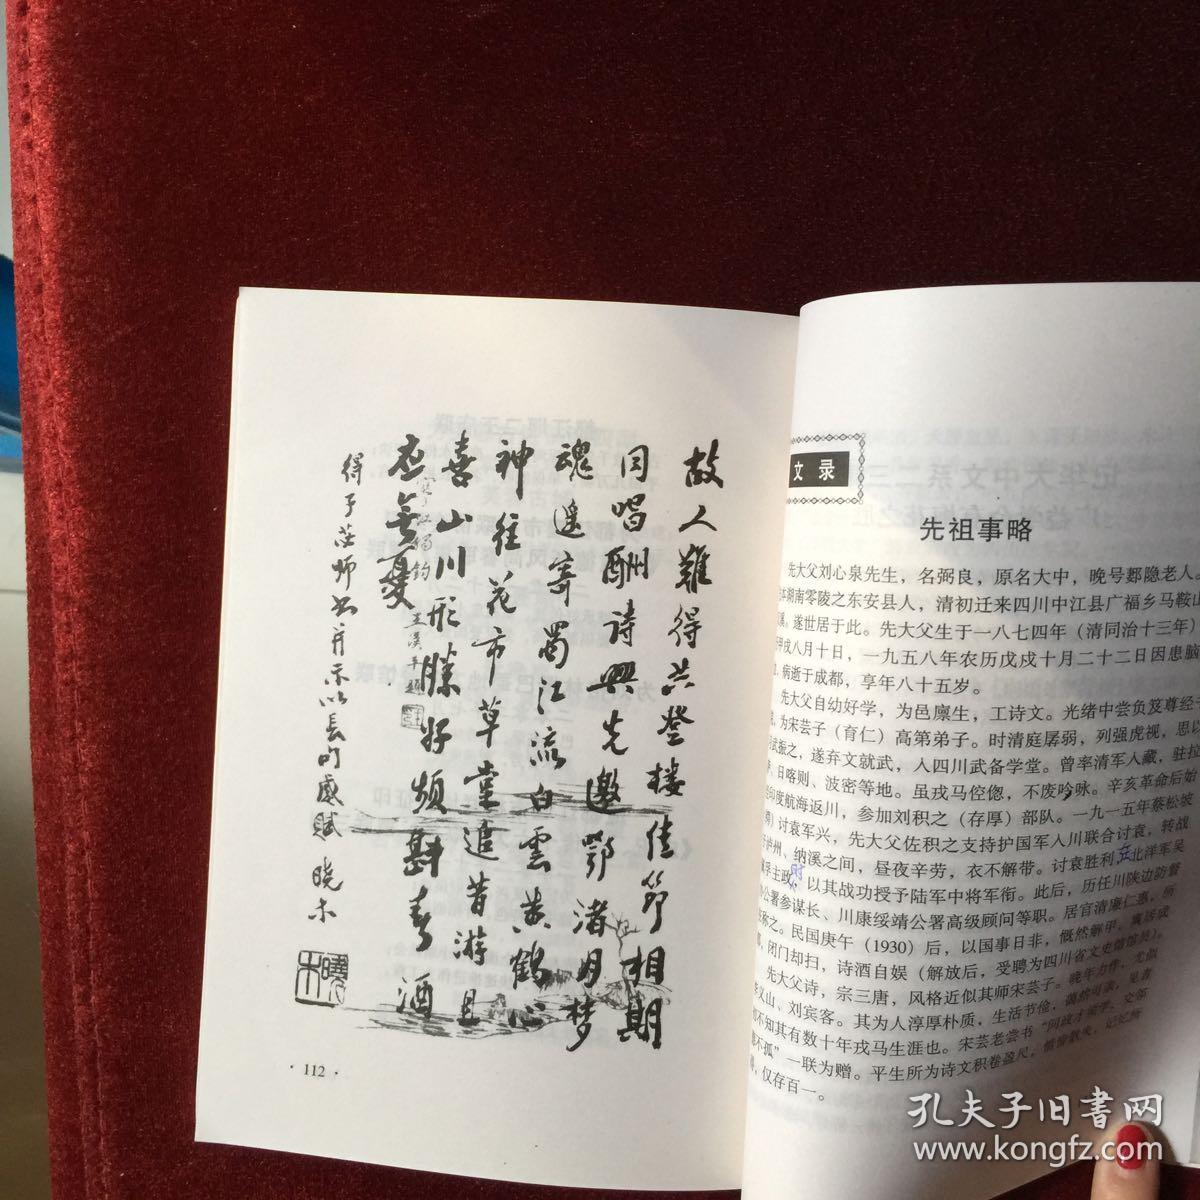 故人難得共登樓佳節相期
同唱酬詩興先邀鄂渚月夢
魂遥寄蜀江流白雲黄鶴心
神往花市草堂追昔游且
喜山川形勝好頻斟春酒
应無憂
得子茳师书
晓木
· 112 ·
文录
先祖事略
先大父刘心泉先生，名弼良，原名大中，晚号鄢隐老人。
本湖南零陵之东安县人，清初迁来四川中江县广福乡马鞍山
溪。遂世居于此。先大父生于一八七四年（清同治十三年）
甲戌八月十日，一九五八年农历戊戌十月二十二日因患脑
病逝于成都，享年八十五岁。
先大父自幼好学，为邑廪生，工诗文。光绪中尝负笈尊经
，为宋芸子（育仁）高第弟子。时清庭孱弱，列强虎视，思以
武振之，遂弃文就武，入四川武备学堂。曾率清军入藏，驻拉
、日喀则、波密等地。虽戎马倥偬，不废吟咏。辛亥革命后始
印度航海返川，参加刘积之（存厚）部队。一九一五年蔡松坡
）讨袁军兴，先大父佐积之支持护国军入川联合讨袁，转战
于泸州、纳溪之间，昼夜辛劳，衣不解带。讨袁胜利，北洋军吴
孚主政时，以其战功授予陆军中将军衔。此后，历任川陕边防督
公署参谋长、川康绥靖公署高级顾问等职。居官清廉仁惠，所
称之。民国庚午（1930）后，以国事日非，慨然解甲，寓居成
，闭门却扫，诗酒自娱（解放后，受聘为四川省文史馆馆员）。
先大父诗，宗三唐，风格近似其师宋芸子。晚年力作，尤似
李义山、刘宾客。其为人淳厚朴质，生活节俭，蔼然可亲，见者
不知其有数十年戎马生涯也。宋芸老尝书“同放才
不孤”一联为赠。平生所为诗文积卷盈尺，惜惨散失，记忆所
，仅存百一。
孔夫子旧书网
www.kongfz.com